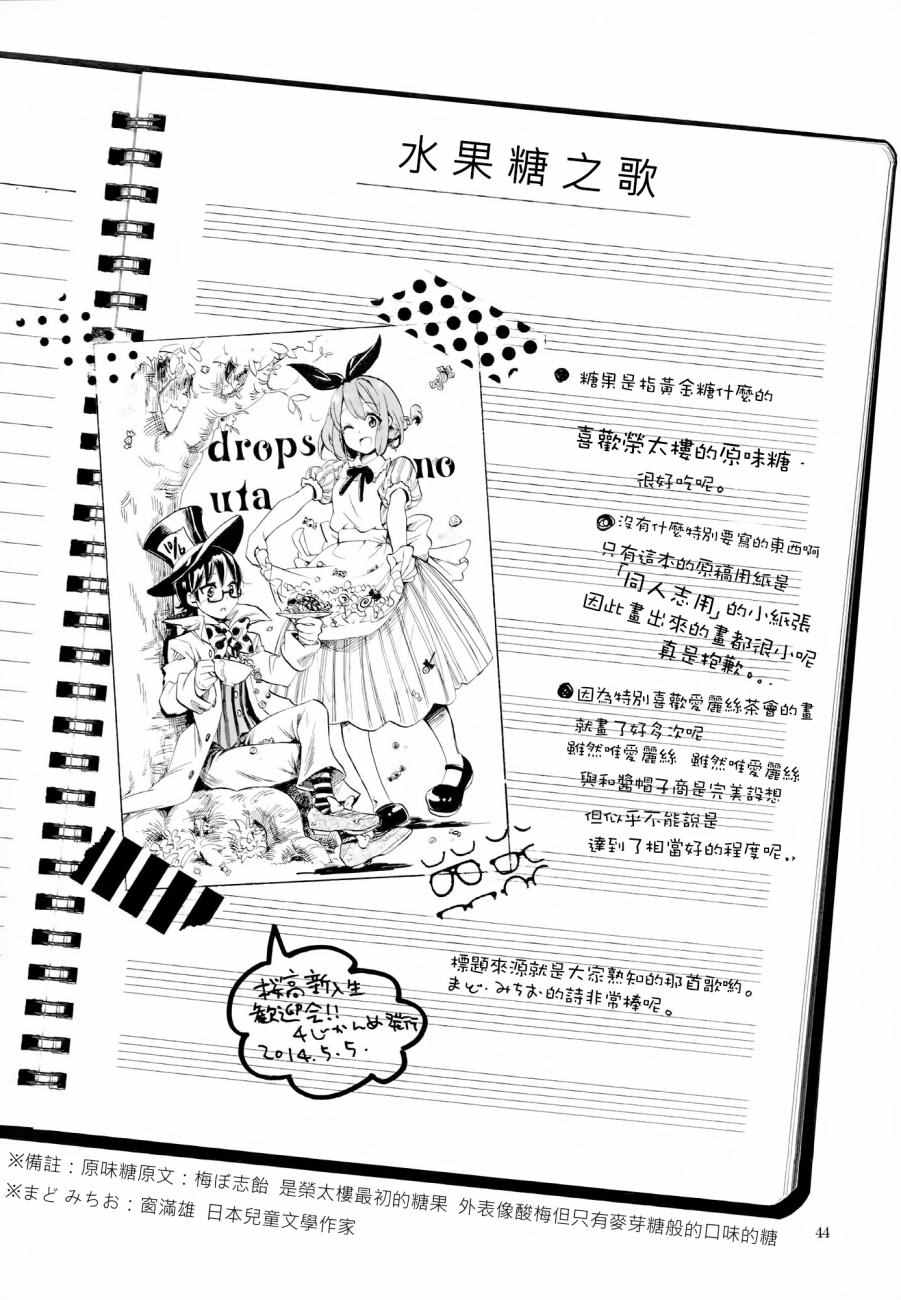 水果糖之歌
drops no
uta
10/6
● 糖果是指黃金糖什麼的
喜歡榮太樓的原味糖．
很好吃呢。
● 沒有什麼特別要寫的東西啊
只有這本的原稿用紙是
「同人志用」的小紙張
因此畫出來的畫都很小呢
真是抱歉。..
● 因為特別喜歡愛麗絲茶會的畫
就畫了好多次呢
雖然唯愛麗絲 雖然唯愛麗絲
與和醬帽子商是完美設想
但似乎不能說是
達到了相當好的程度呢..
標題來源就是大家熟知的那首歌喲。
まど．みちお的詩非常棒呢。
桜高新入生
歓迎会!!
4じかんめ発行
2014.5.5.
※備註：原味糖原文：梅ぼ志飴 是榮太樓最初的糖果 外表像酸梅但只有麥芽糖般的口味的糖
※まど みちお：窗滿雄 日本兒童文學作家
44